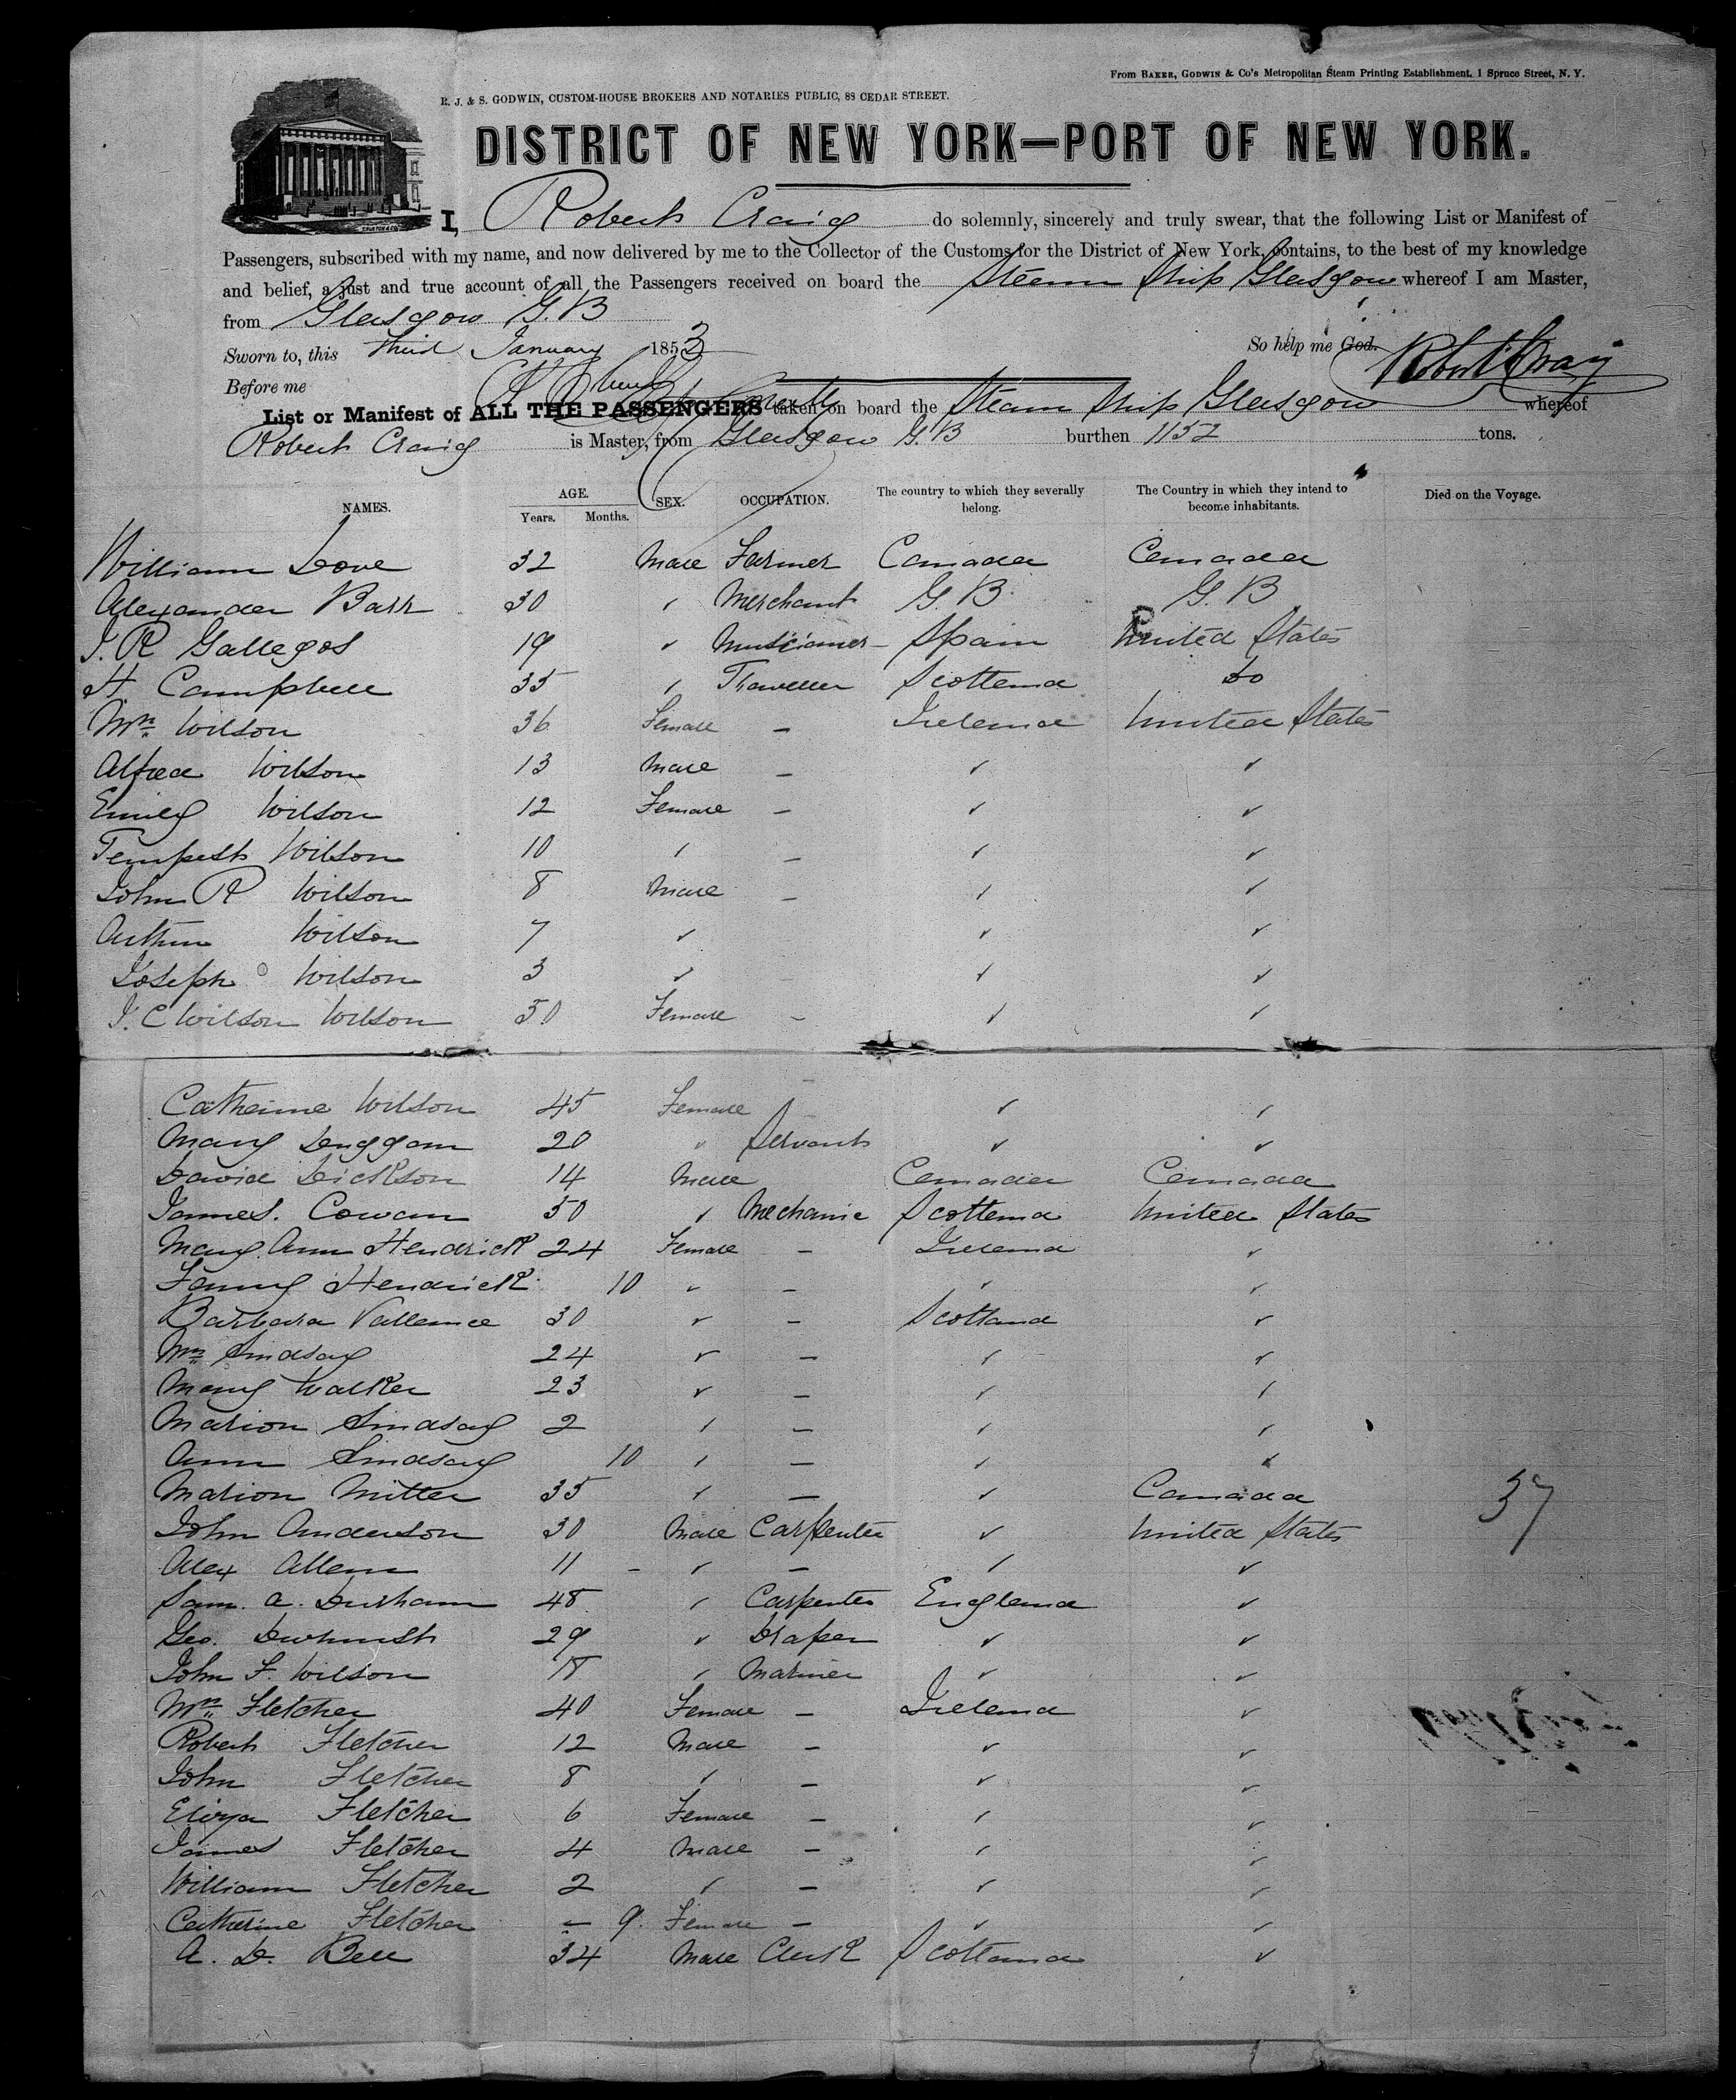 From BAKER, GODWIN & Co's Metropolitan Steam Printing Establishment, 1 Spruce Street, N. Y.
R. J. & S. GODWIN, CUSTOM-HOUSE BROKERS AND NOTARIES PUBLIC, 88 CEDAR STREET.
DISTRICT OF NEW YORK—PORT OF NEW YORK.
I, Robert Craig do solemnly, sincerely and truly swear, that the following List or Manifest of
Passengers, subscribed with my name, and now delivered by me to the Collector of the Customs for the District of New York, contains, to the best of my knowledge
and belief, a just and true account of all the Passengers received on board the Steam Ship Glasgow whereof I am Master,
from Glasgow G.B
Sworn to, this third January 1853 So help me God. Robt Craig
Before me
List or Manifest of ALL THE PASSENGERS taken on board the Steam Ship Glasgow whereof
Robert Craig is Master, from Glasgow G B burthen 1152 tons.
NAMES. AGE. Years. Months. SEX. OCCUPATION. The country to which they severally belong. The Country in which they intend to become inhabitants. Died on the Voyage.
William Love 32 Male Farmer Canada Canada
Alexander Barr 30 " Merchant G. B. G. B
J. R Gallegos 19 " Spain United States
H Campbell 35 " Traveller Scotland Do
Mrs Wilson 36 Female — Ireland United States
Alfred Wilson 13 Male — " "
Emily Wilson 12 Female — " "
Tempest Wilson 10 " — " "
John R Wilson 8 Male — " "
Arthur Wilson 7 " " "
Joseph Wilson 3 " " "
J. C Wilson Wilson 50 Female — " "
Catherine Wilson 45 Female " "
Mary 20 " Servant " "
David Dickson 14 Male Canada Canada
James. Cowan 50 " Mechanic Scotland United States
Mary Ann Hendrick 24 Female — Ireland "
Fanny Hendrick 10 " — " "
Barbara Vallance 30 " — Scotland "
Mrs Lindsay 24 " — " "
Mary Walker 23 " — " "
Marion Lindsay 2 " — " "
Ann Lindsay 10 " — " "
Marion Miller 35 " — " Canada 37
John Anderson 30 Male Carpenter " United States
Alex Allen 11 — " — " "
Sam. A. Durham 48 " Carpenter England "
Geo. Dewhurst 29 " Draper " "
John F. Wilson 18 " Mariner " "
Mrs Fletcher 40 Female — Ireland "
Robert Fletcher 12 Male — " "
John Fletcher 8 " — " "
Eliza Fletcher 6 Female — " "
James Fletcher 4 Male — " "
William Fletcher 2 " — " "
Catherine Fletcher — 9. Female — " "
A. D. Bell 34 Male Clerk Scotland "